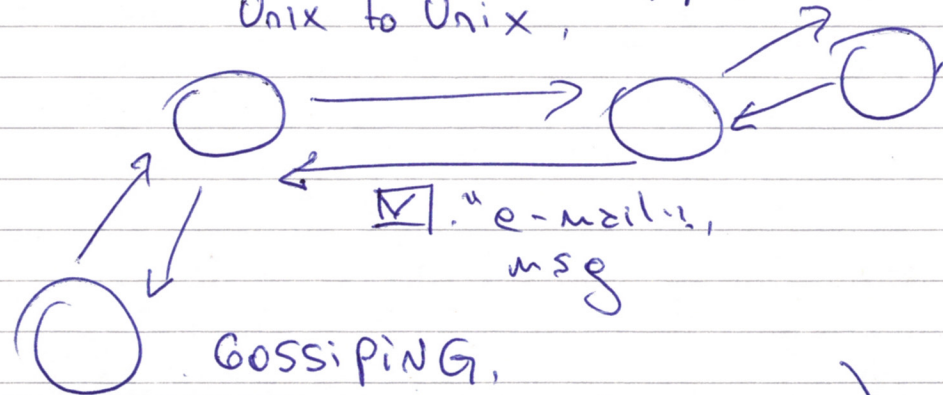 Unix to Unix,
"e-mail",
msg
GOSSiPiNG,